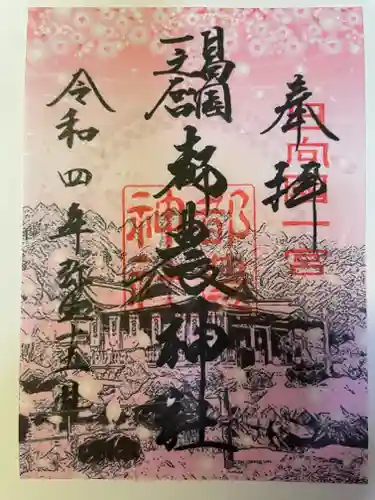 奉拝
日向国
一之宮
都農神社
令和四年弥生
日向国一宮
都農
神社